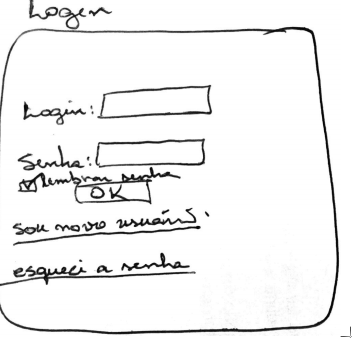 Login
Login:
Senha:
Lembrar senha
OK
sou novo usuário
esqueci a senha